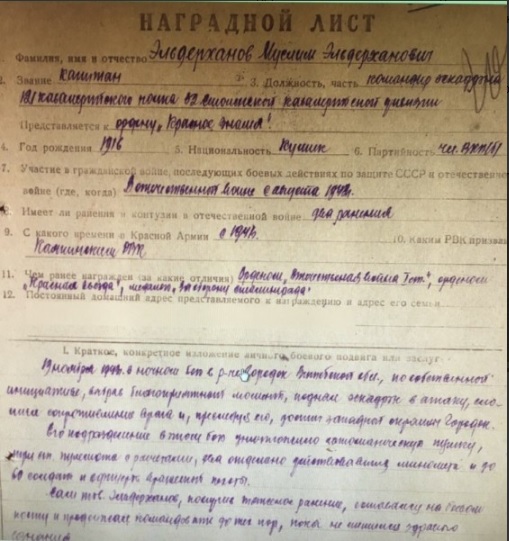 НАГРАДНОЙ ЛИСТ
1. Фамилия, имя и отчество Эльдерханов Муслим Эльдерханович
2. Звание Капитан 3. Должность, часть командир эскадрона
121 кавалерийского полка 32 Смоленской кавалерийской дивизии
Представляется к ордену "Красное знамя"
4. Год рождения 1916 5. Национальность Кумык 6. Партийность чл. ВКП(б)
7. Участие в гражданской войне, последующих боевых действиях по защите СССР и отечественной
войне (где, когда) В отечественной войне с августа 1942г.
8. Имеет ли ранения и контузии в отечественной войне два ранения
9. С какого времени в Красной Армии с 194 г. 10. Каким РВК призван
РВК
11. Чем ранее награжден (за какие отличия) Орденом "Отечественная война I ст.", орденом
"Красная звезда", медалью "За оборону Сталинграда"
12. Постоянный домашний адрес представляемого к награждению и адрес его семьи
I. Краткое, конкретное изложение личного боевого подвига или заслуг
19 ноября 1943г. в ночном бою в р-не Городок Витебской обл., по собственной
инициативе, выбрав благоприятный момент, поднял эскадрон в атаку, сло-
мил сопротивление врага и, преследуя его, достиг западной окраины Городок.
Его подразделение в этом бою уничтожено автоматическую пушку,
три пулемета с расчетами, два отдельно действовавших миномета и до
60 солдат и офицеров вражеской пехоты.
Сам тов. Эльдерханов, получив тяжелое ранение, оставался на боевом
посту и продолжал командовать до тех пор, пока не лишился здравого
сознания